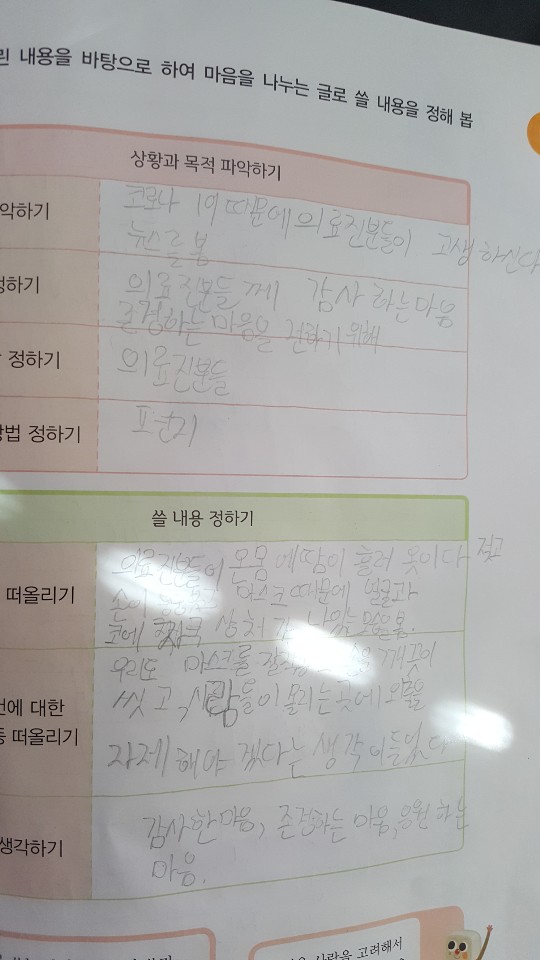 린 내용을 바탕으로 하여 마음을 나누는 글로 쓸 내용을 정해 봅
상황과 목적 파악하기
악하기
코로나 19 때문에 의료진분들이 고생하신다
뉴스를 봄
정하기
의료진분들께 감사하는 마음
존경하는 마음을 전하기 위해
정하기
의료진분들
방법 정하기
편지
쓸 내용 정하기
떠올리기
의료진분들이 온몸에 땀이 흘러 옷이 다 젖고
손이 마스크 때문에 얼굴과
코에 자국 상처가 나있는 모습을 봄.
건에 대한
등 떠올리기
우리도 마스크를 깨끗이
씻고, 사람들이 몰리는 곳에
자제해야 겠다는 생각이 들었다
생각하기
감사한 마음, 존경하는 마음, 응원하는
마음.
사람을 고려해서